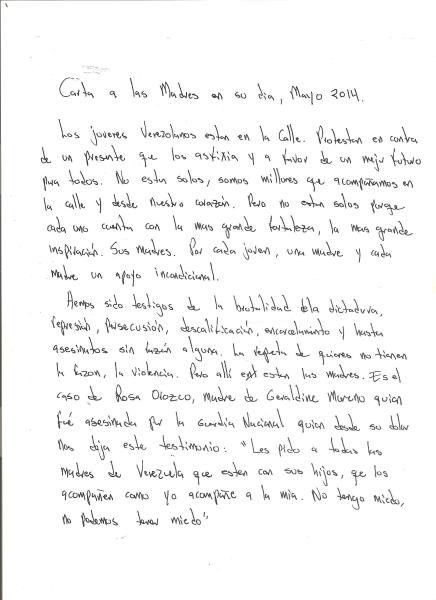 Carta a las Madres en su dia, Mayo 2014.
Los jovenes Venezolanos estan en la Calle. Protestan en contra
de un presente que los asfixia y a favor de un mejor futuro
para todos. No estan solos, somos millones que acompañamos en
la calle y desde nuestro corazón. Pero no estan solos porque
cada uno cuenta con la mas grande fortaleza, la mas grande
inspiración. Sus madres. Por cada joven, una madre y cada
madre un apoyo incondicional.
Hemos sido testigos de la brutalidad de la dictadura,
represión, persecusión, descalificación, encarcelamiento y hasta
asesinatos sin razón alguna. La respuesta de quienes no tienen
la razon, la violencia. Pero allí estan las madres. Es el
caso de Rosa Orozco, madre de Geraldine Moreno quien
fué asesinada por la Guardia Nacional quien desde su dolor
nos deja este testimonio: "Les pido a todas las
madres de Venezuela que esten con sus hijos, que los
acompañen como yo acompañe a la mia. No tengo miedo,
no podemos tener miedo"